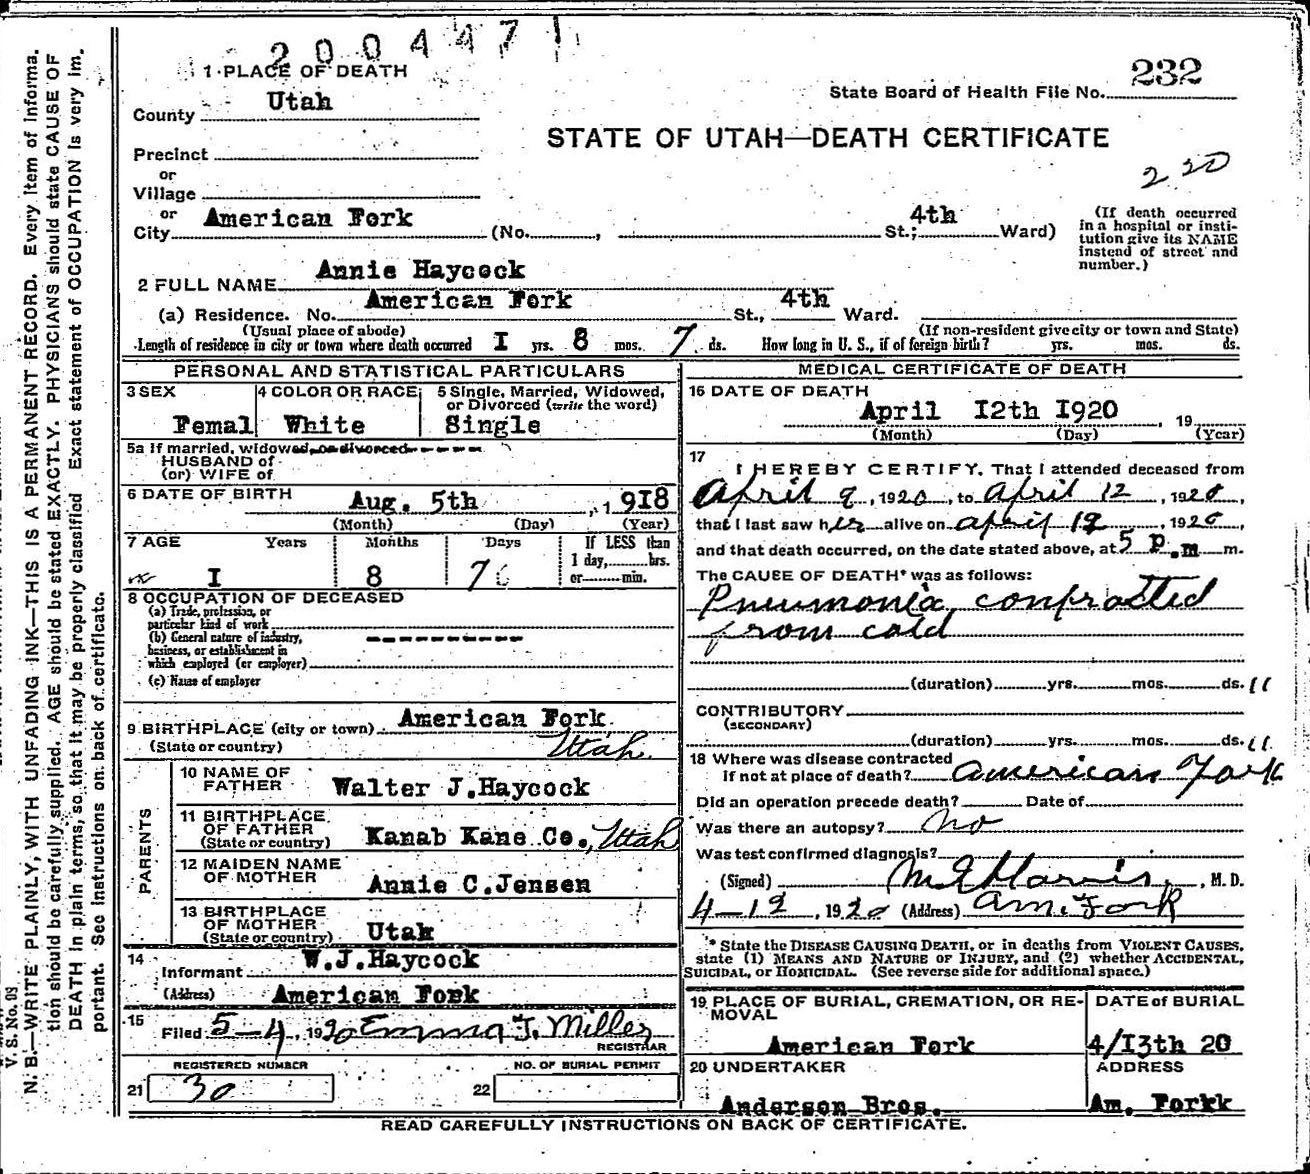 2004471
1 PLACE OF DEATH
232
State Board of Health File No.
County Utah
STATE OF UTAH—DEATH CERTIFICATE
Precinct
or
Village
220
or
City American Fork (No. , St.; 4th Ward)
(If death occurred
in a hospital or insti-
tution give its NAME
instead of street and
number.)
2 FULL NAME Annie Haycock
(a) Residence. No. American Fork St., 4th Ward.
(Usual place of abode) (If non-resident give city or town and State)
Length of residence in city or town where death occurred I yrs. 8 mos. 7 ds. How long in U. S., if of foreign birth? yrs. mos. ds.
PERSONAL AND STATISTICAL PARTICULARS
3 SEX 4 COLOR OR RACE 5 Single, Married, Widowed,
or Divorced (write the word)
Femal White Single
5a If married, widowed or divorced
HUSBAND of
(or) WIFE of
6 DATE OF BIRTH Aug. 5th , 1918
(Month) (Day) (Year)
7 AGE Years Months Days If LESS than
1 day, hrs.
or min.
I 8 7
8 OCCUPATION OF DECEASED
(a) Trade, profession, or
particular kind of work
(b) General nature of industry,
business, or establishment in
which employed (or employer)
(c) Name of employer
9 BIRTHPLACE (city or town) American Fork
(State or country) Utah
PARENTS
10 NAME OF
FATHER Walter J.Haycock
11 BIRTHPLACE
OF FATHER
(State or country) Kanab Kane Co., Utah
12 MAIDEN NAME
OF MOTHER Annie C.Jensen
13 BIRTHPLACE
OF MOTHER
(State or country) Utah
14
Informant W.J.Haycock
(Address) American Fork
15
Filed 5-4, 1920 Emma J. Miller
REGISTRAR
REGISTERED NUMBER NO. OF BURIAL PERMIT
21 30 22
MEDICAL CERTIFICATE OF DEATH
16 DATE OF DEATH
April I2th I920 , 19
(Month) (Day) (Year)
17
I HEREBY CERTIFY, That I attended deceased from
April 9, 1920, to April 12, 1920,
that I last saw her alive on April 12, 1920,
and that death occurred, on the date stated above, at 5 P.m m.
The CAUSE OF DEATH* was as follows:
Pneumonia, contracted
from cold
(duration) yrs. mos. ds. 11
CONTRIBUTORY
(SECONDARY)
(duration) yrs. mos. ds. 11
18 Where was disease contracted
if not at place of death? American Fork
Did an operation precede death? Date of
Was there an autopsy? no
Was test confirmed diagnosis?
(Signed) M E Harris, M. D.
4-12, 1920 (Address) Am. Fork
* State the DISEASE CAUSING DEATH, or in deaths from VIOLENT CAUSES,
state (1) MEANS AND NATURE OF INJURY, and (2) whether ACCIDENTAL,
SUICIDAL, or HOMICIDAL. (See reverse side for additional space.)
19 PLACE OF BURIAL, CREMATION, OR RE-
MOVAL
DATE of BURIAL
American Fork 4/I3th 20
20 UNDERTAKER ADDRESS
Anderson Bros. Am. Forkk
READ CAREFULLY INSTRUCTIONS ON BACK OF CERTIFICATE.
V. S. No.
N. B.—WRITE PLAINLY, WITH UNFADING INK—THIS IS A PERMANENT RECORD. Every item of informa-
tion should be carefully supplied. AGE should be stated EXACTLY. PHYSICIANS should state CAUSE OF
DEATH in plain terms, so that it may be properly classified Exact statement of OCCUPATION is very im-
portant. See instructions on back of certificate.